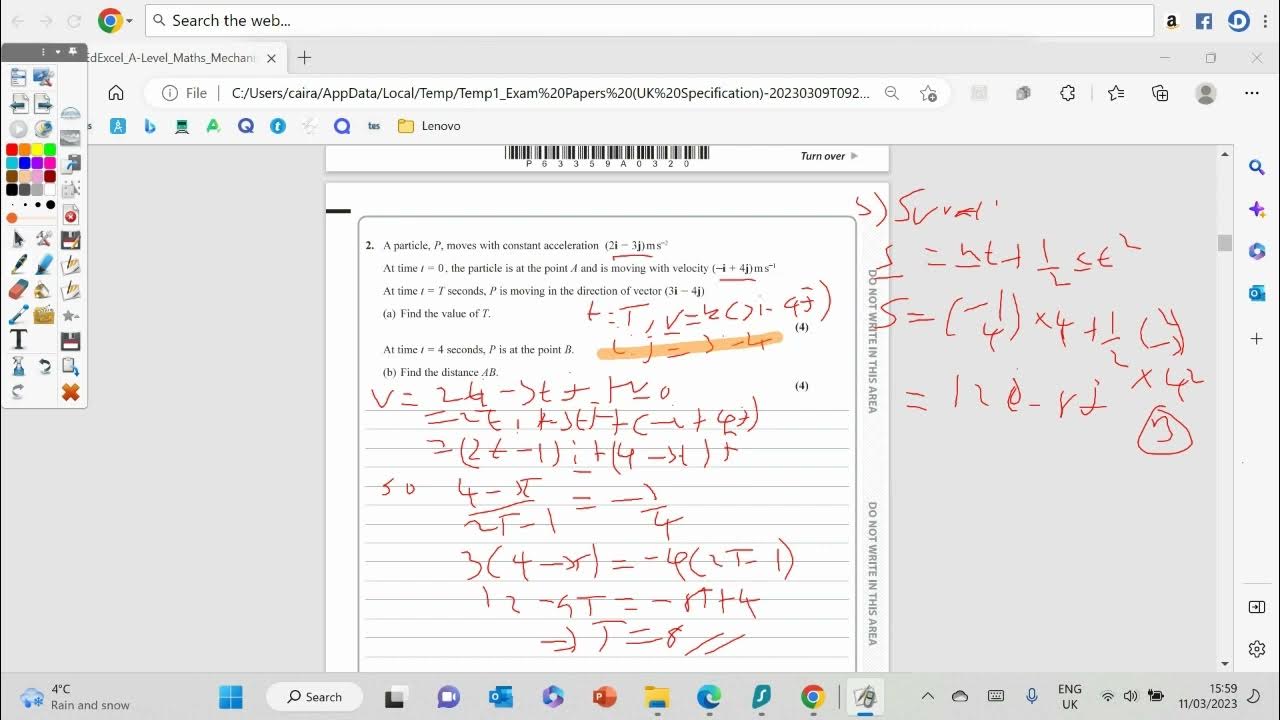 Search the web...
EdExcel_A-Level_Maths_Mechan
File
C:/Users/caira/AppData/Local/Temp/Temp1_Exam%20Papers%20(UK%20Specification)-20230309T092...
tes
Lenovo
P63359A0320
Turn over
2. A particle, P, moves with constant acceleration (2i − 3j) m s⁻²
At time t = 0, the particle is at the point A and is moving with velocity (−i + 4j) m s⁻¹
At time t = T seconds, P is moving in the direction of vector (3i − 4j)
(a) Find the value of T.
(4)
At time t = 4 seconds, P is at the point B.
(b) Find the distance AB.
(4)
t = T, v = k(3i − 4j)
= (2t − 1)i + (4 − 3t)j
so
3(4 − 3T) = −4(2T − 1)
12 − 9T = −8T + 4
⇒ T = 8
s = ut + 1/2 at²
× 4²
= 12i − 8j
DO NOT WRITE IN THIS AREA
DO NOT WRITE IN THIS AREA
4°C
Rain and snow
Search
ENG
UK
15:59
11/03/2023